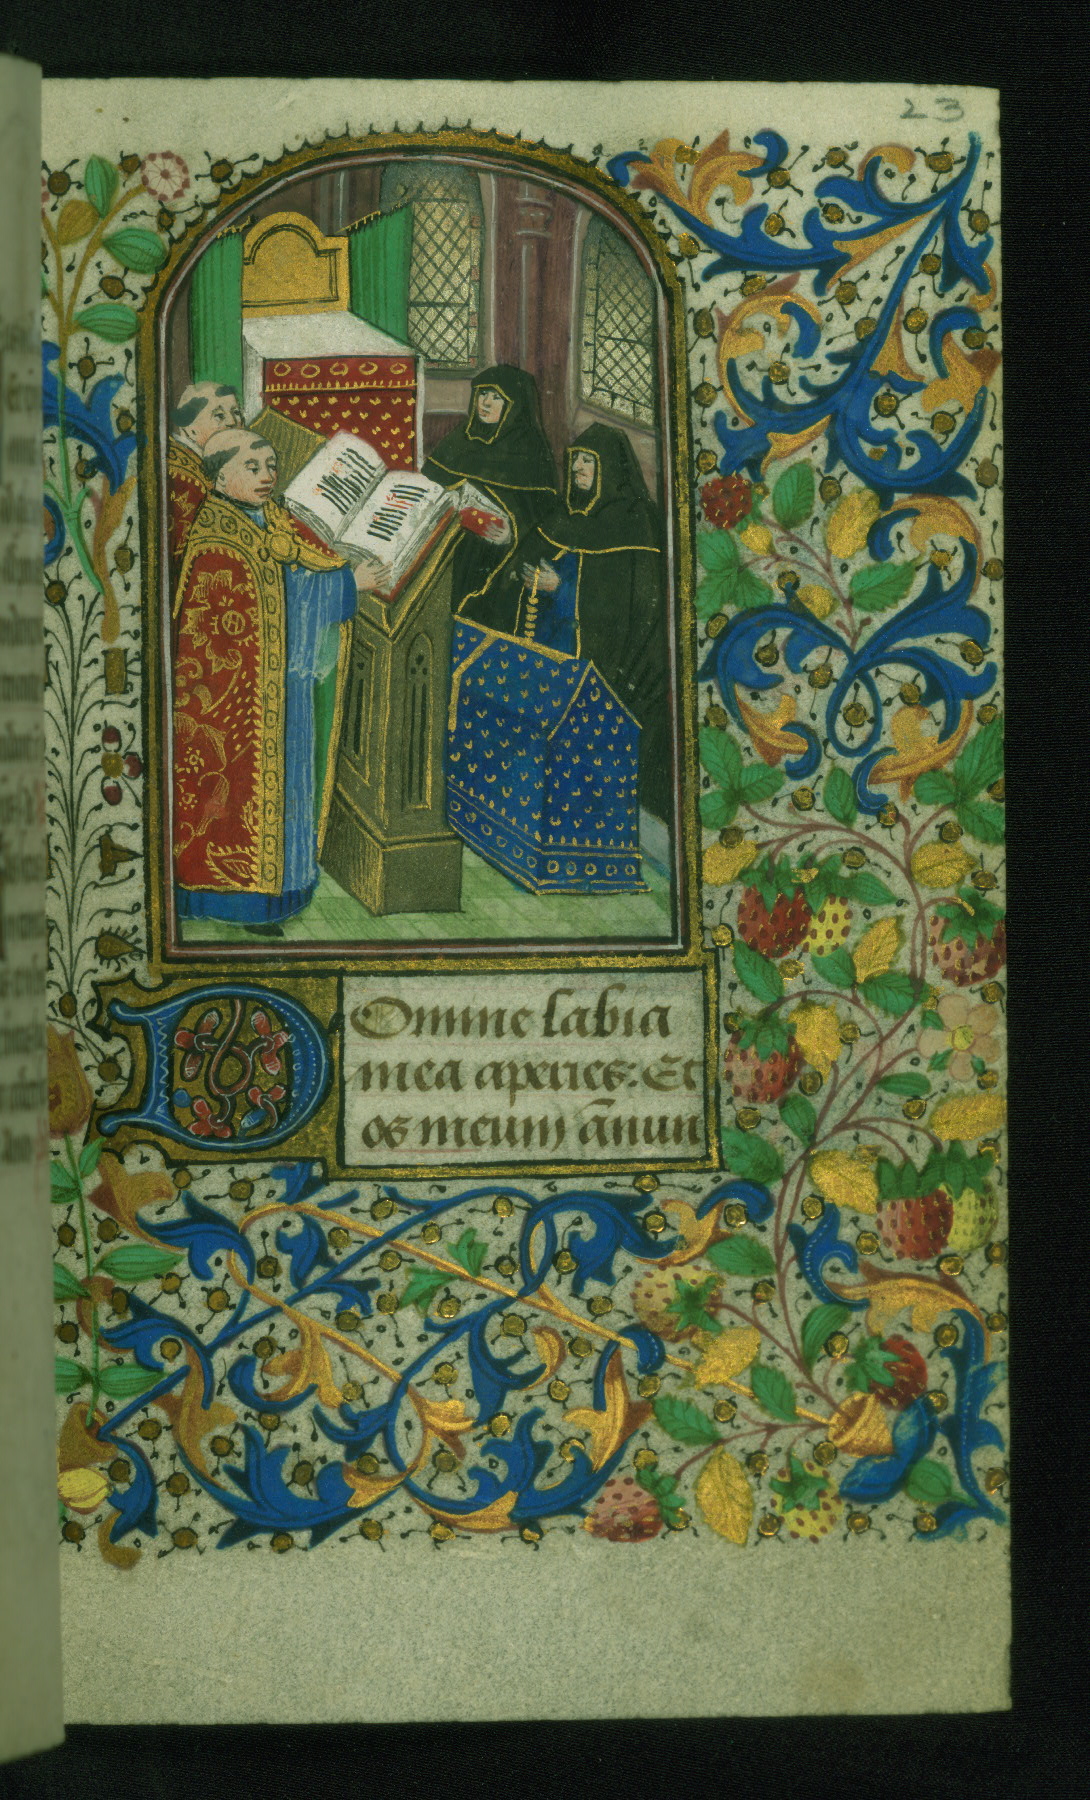 23
Domine labia
mea aperies. Et
os meum ānun